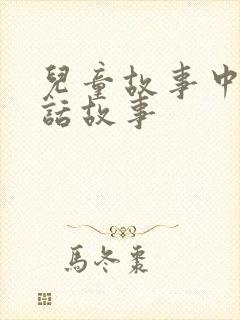 兒童故事中
話故事
馬冬棗